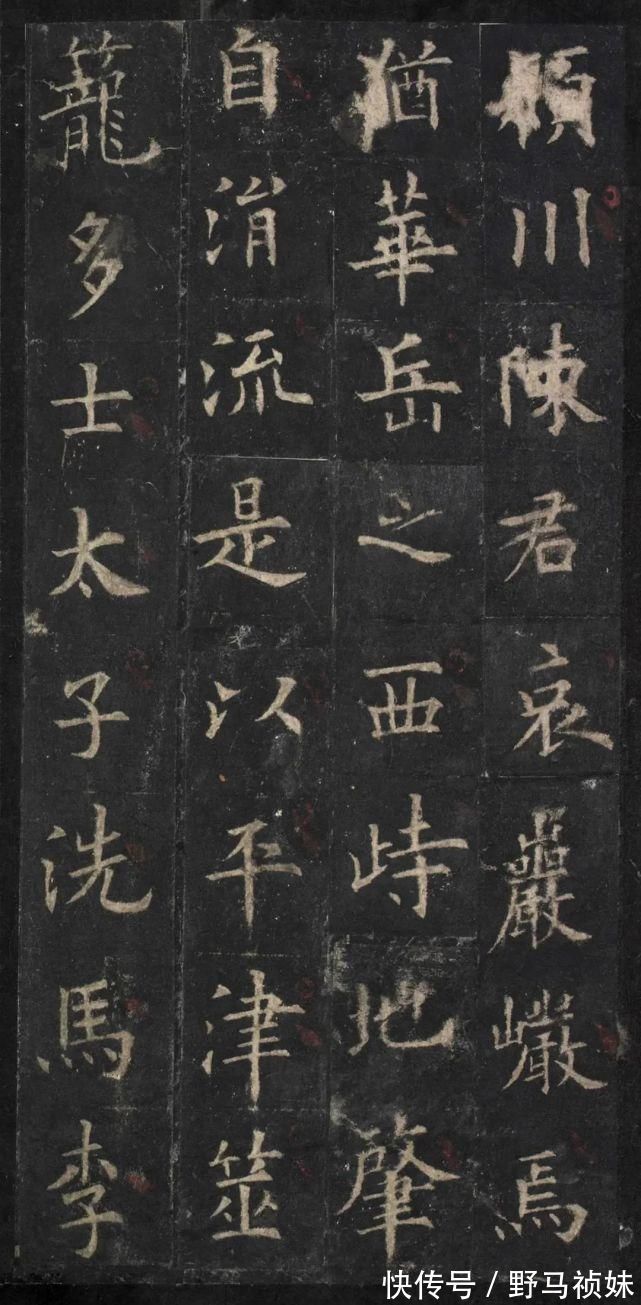 潁川陳君哀巖巗焉
猶華岳之西峙地肇
自涓流是以平津筮
籠多士太子洗馬李
快传号 / 野马祯妹